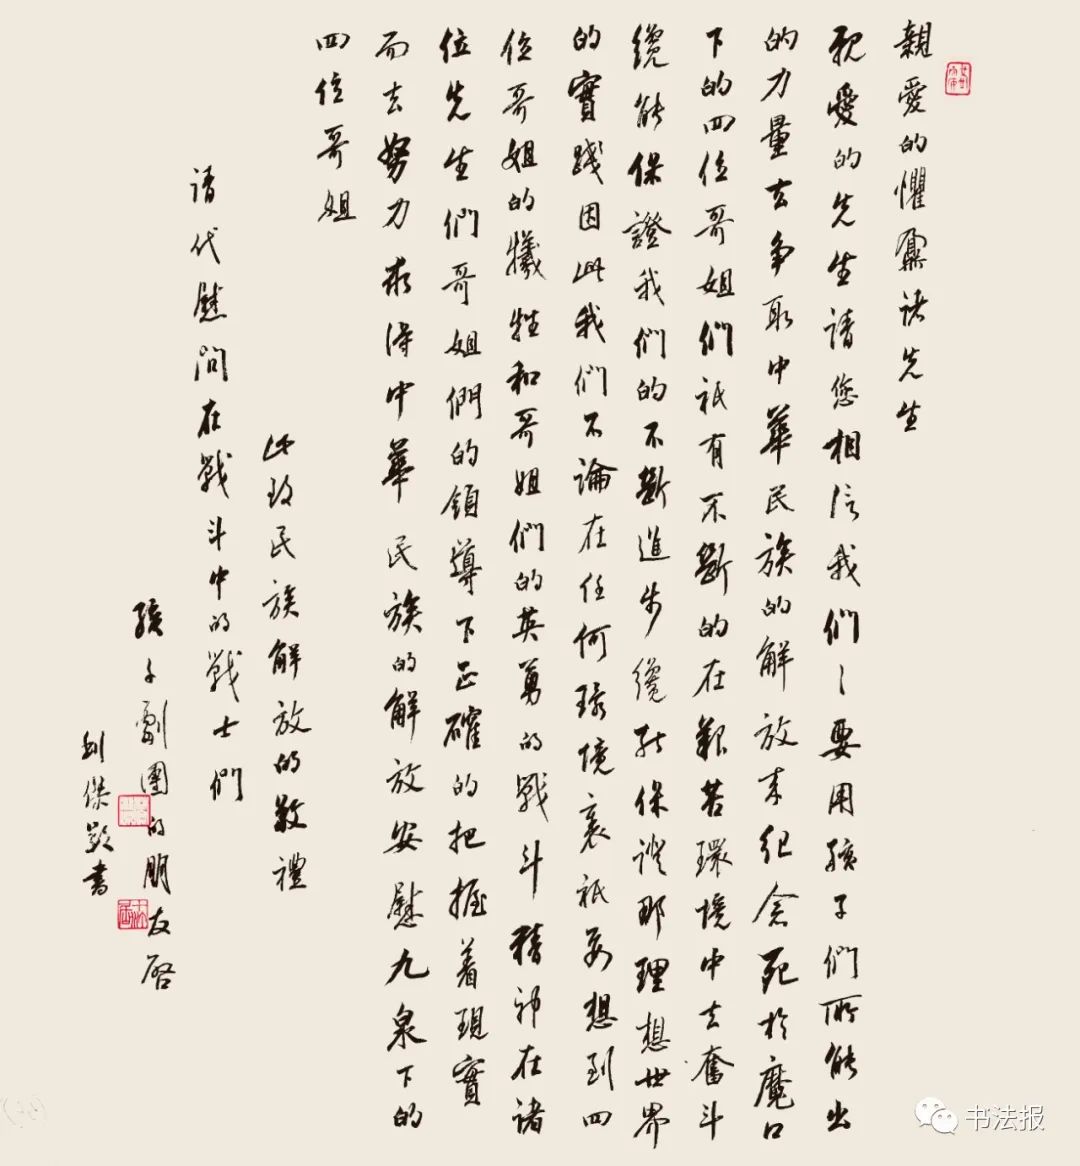 親愛的懼𪔂诸先生
親愛的先生請您相信我们〻要用孩子们所能出
的力量去争取中華民族的解放来纪念死於魔口
下的四位哥姐们祇有不斷的在艱苦環境中去奮斗
纔能保證我们的不断進步纔能保證那理想世界
的實踐因此我们不論在任何環境裹祇要想到四
位哥姐的犧牲和哥姐们的英勇的戰斗精神在诸
位先生们哥姐們的領導下正確的把握着現實
而去努力求得中華民族的解放安慰九泉下的
四位哥姐
此致民族解放的敬禮
请代慰问在戰斗中的戰士們
孩子劇團的朋友啓
刘傑
書
书法报